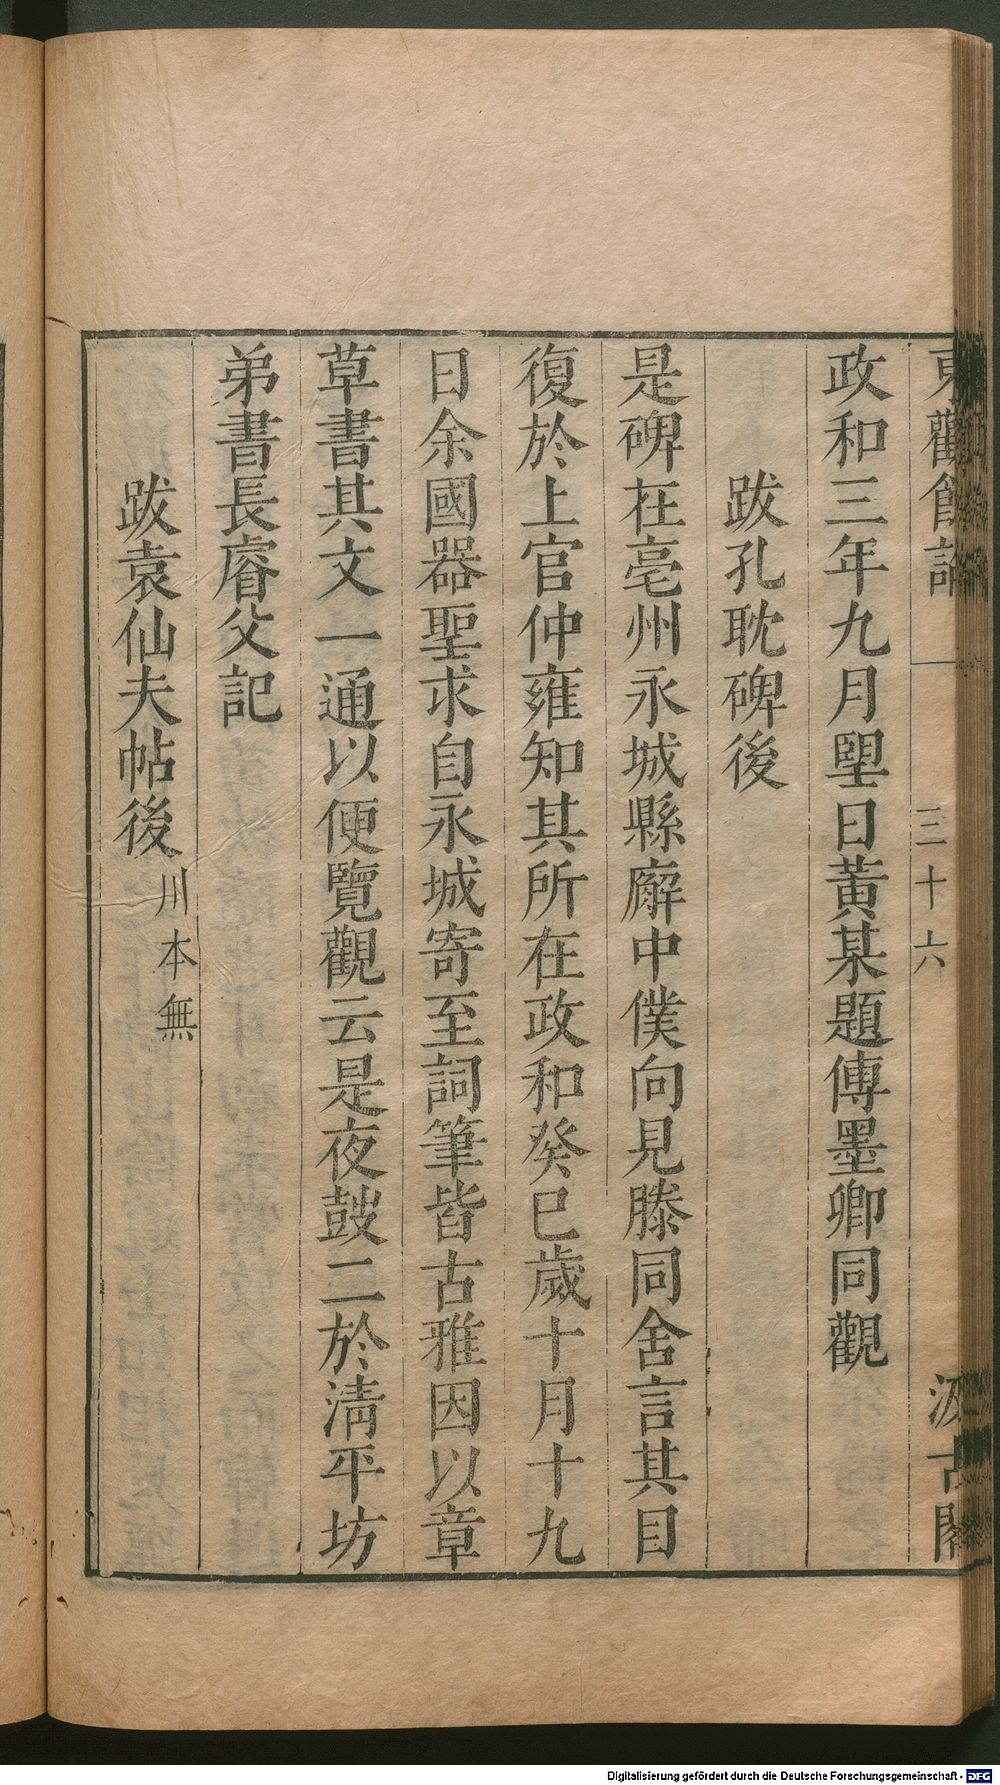 東觀餘論
三十六
汲古閣
政和三年九月朢日黃某題傅墨卿同觀
跋孔耽碑後
是碑在亳州永城縣廨中僕向見滕同舍言其目
復於上官仲雍知其所在政和癸巳歲十月十九
日余國器聖求自永城寄至詞筆皆古雅因以章
草書其文一通以便覽觀云是夜鼓二於淸平坊
弟書長睿父記
跋袁仙夫帖後川本無
Digitalisierung gefördert durch die Deutsche Forschungsgemeinschaft - DFG